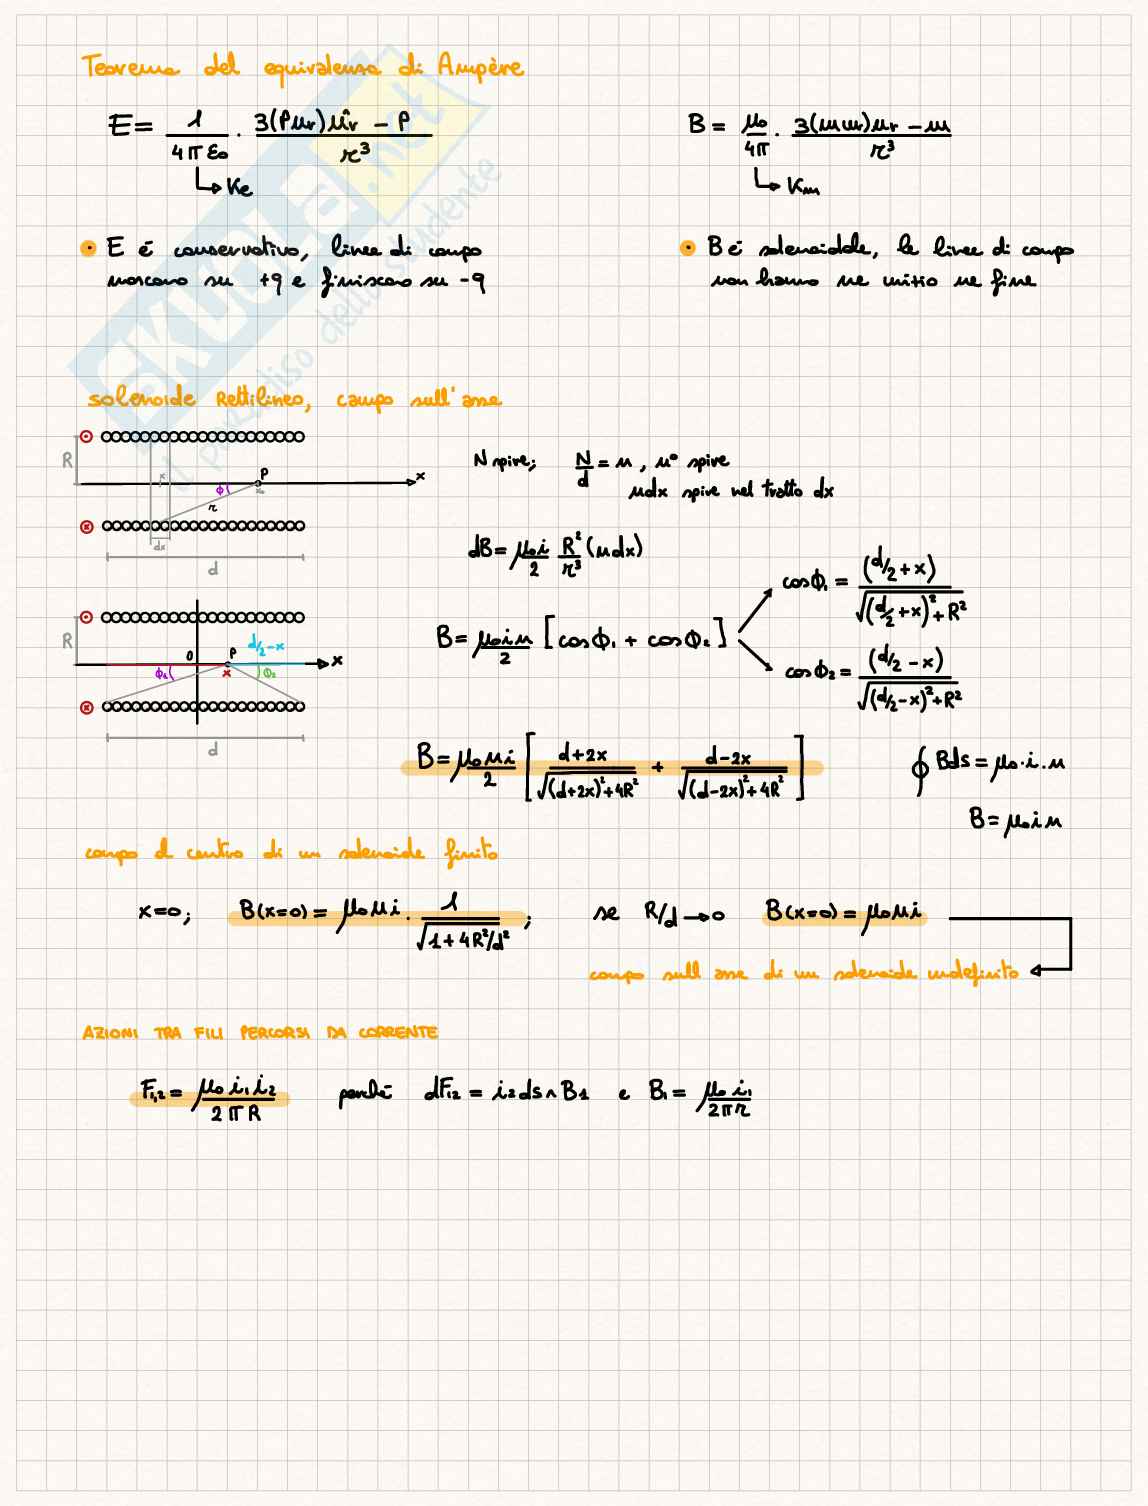 Teorema del equivalensa di Ampère
E = 1/(4πε₀) · (3(p ur)ûr − p)/r³
B = μ₀/(4π) · (3(m ur)ur − m)/r³
↳ Ke
↳ Km
• E é conservativo, linee di campo
nascono su +q e finiscono su -q
• B é solenoidale, le linee di campo
non hanno ne initio ne fine
solenoide Rettilineo, campo sull'asse
R
P
x
x
ϕ
r
dx
d
N spire; N/d = n, n° spire
ndx spire nel tratto dx
dB = μ₀i/2 R²/r³ (ndx)
R
0
P
d/2-x
x
ϕ₁
x
ϕ₂
d
B = μ₀in/2 [cosϕ₁ + cosϕ₂]
cosϕ₁ = (d/2+x)/√((d/2+x)²+R²)
cosϕ₂ = (d/2 - x)/√((d/2-x)²+R²)
B = μ₀ni/2 [(d+2x)/√((d+2x)²+4R²) + (d-2x)/√((d-2x)²+4R²)]
∮ Bds = μ₀·i·n
B = μ₀in
campo al centro di un solenoide finito
x=0; B(x=0) = μ₀ni · 1/√(1+4R²/d²); se R/d → 0 B(x=0) = μ₀ni
campo sull asse di un solenoide indefinito
AZIONI TRA FILI PERCORSI DA CORRENTE
F₁,₂ = μ₀i₁i₂/(2πR) perché dF₁₂ = i₂ds∧B1 e B₁ = μ₀i₁/(2πr)
SKUOLA.net
il paradiso dello studente